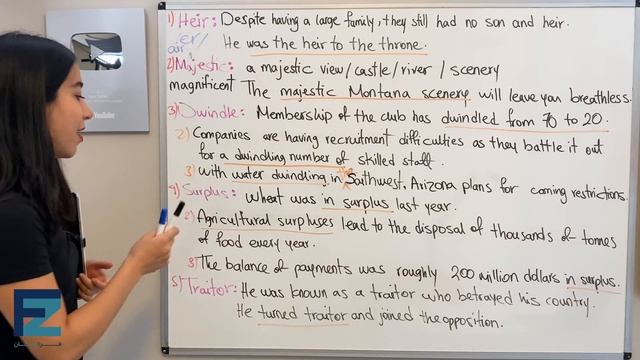 1) Heir: Despite having a large family, they still had no son and heir.
/er/
air
He was the heir to the throne.
2) Majestic: a majestic view/castle/river/scenery
magnificent The majestic Montana scenery will leave you breathless.
3) Dwindle: Membership of the club has dwindled from 70 to 20.
2) Companies are having recruitment difficulties as they battle it out
for a dwindling number of skilled staff.
3) With water dwindling in the Saithwest, Arizona plans for coming restrictions.
4) Surplus: Wheat was in surplus last year.
2) Agricultural surpluses lead to the disposal of thousands of tonnes
of food every year.
3) The balance of payments was roughly 200 million dollars in surplus.
5) Traitor: He was known as a traitor who betrayed his country.
He turned traitor and joined the opposition.
YouTube
FZ